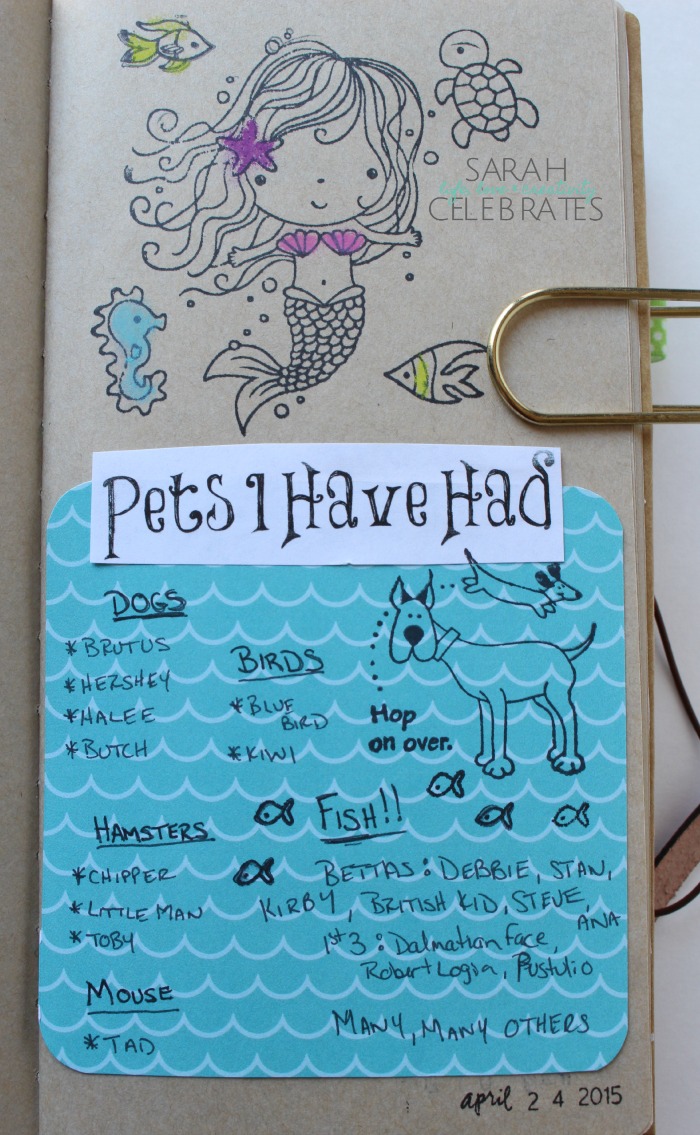 SARAH
life, love + creativity
CELEBRATES
Pets I Have Had
DOGS
*BRUTUS
*HERSHEY
*HALEE
*BUTCH
BIRDS
*BLUE
BIRD
*KIWI
Hop
on over.
HAMSTERS
*CHIPPER
*LITTLE MAN
*TOBY
MOUSE
*TAD
FISH!!
BETTAS: DEBBIE, STAN,
KIRBY, BRITISH KID, STEVE,
ANA
1st 3: Dalmatian Face,
Robert Logia, Pustulio
MANY, MANY OTHERS
april 2 4 2015